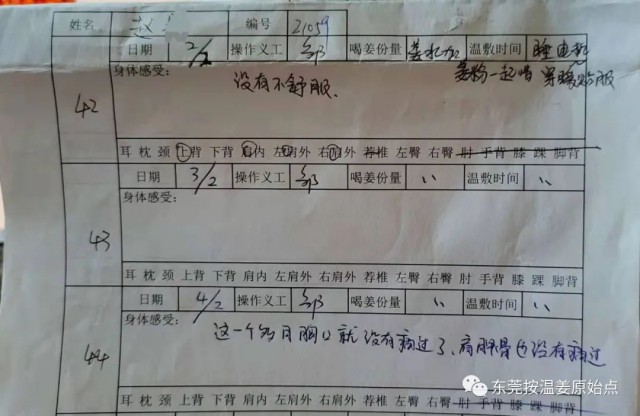 姓名 赵 编号 21059
日期 2/2 操作义工 邹 喝姜份量 温敷时间
身体感受:
姜粉一起喝
没有不舒服.
42
耳 枕 颈 上背 下背 肩内 左肩外 右肩外 荐椎 左臀 右臀 肘 手背 膝 踝 脚背
日期 3/2 操作义工 邹 喝姜份量 '' 温敷时间 ''
身体感受:
43
耳 枕 颈 上背 下背 肩内 左肩外 右肩外 荐椎 左臀 右臀 肘 手背 膝 踝 脚背
日期 4/2 操作义工 邹 喝姜份量 '' 温敷时间 ''
身体感受:
这一个多月胸口就没有痛过了、肩胛骨也没有痛过
44
耳 枕 颈 上背 下背 肩内 左肩外 右肩外 荐椎 左臀 右臀 肘 手背 膝 踝 脚背
东莞按温姜原始点